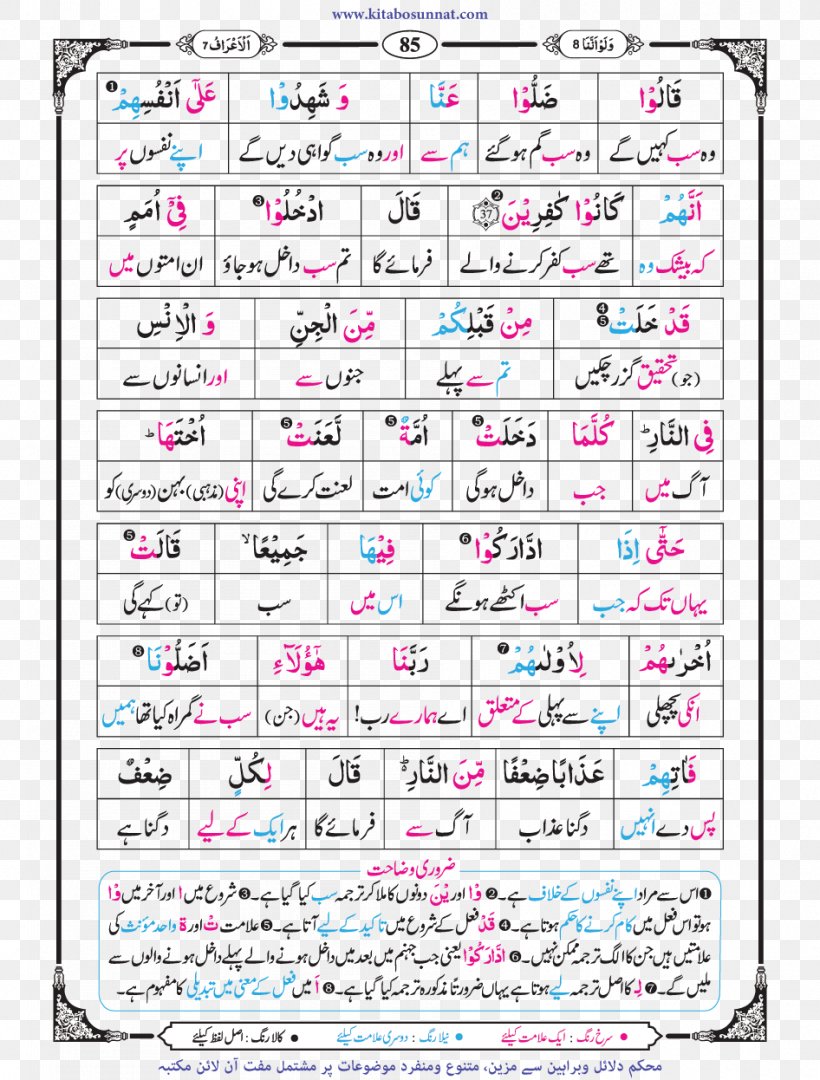 www.kitabosunnat.com
وَلَوْاَنَّنَا 8 85 اَلْاَعْرَافُ 7
قَالُوْا ضَلُّوْا عَنَّا وَ شَهِدُوْا عَلٰٓى اَنْفُسِهِمْ ❶
وہ سب کہیں گے وہ سب گم ہو گئے ہم سے اور وہ سب گواہی دیں گے اپنے نفسوں پر
اَنَّهُمْ كَانُوْا كٰفِرِيْنَ ❷ 37 قَالَ ادْخُلُوْا ❸ فِيْٓ اُمَمٍ
کہ بیشک وہ تھے سب کفر کرنے والے فرمائے گا تم سب داخل ہو جاؤ ان امتوں میں
قَدْ ❹ خَلَتْ ❺ مِنْ قَبْلِكُمْ مِّنَ الْجِنِّ وَ الْاِنْسِ
(جو) تحقیق گزر چکیں تم سے پہلے جنوں سے اور انسانوں سے
فِي النَّارِ ؕ كُلَّمَا دَخَلَتْ ❺ اُمَّةٌ ❺ لَّعَنَتْ ❺ اُخْتَهَا ؕ
آگ میں جب داخل ہوگی کوئی امت لعنت کرے گی اپنی (مذہبی) بہن (دوسری) کو
حَتّٰٓى اِذَا ادَّارَكُوْا ❻ فِيْهَا جَمِيْعًا ۙ قَالَتْ ❺
یہاں تک کہ جب سب اکٹھے ہونگے اس میں سب (تو) کہے گی
اُخْرٰىهُمْ لِاُوْلٰىهُمْ ❼ رَبَّنَا هٰٓؤُلَآءِ اَضَلُّوْنَا ❽
انکی پچھلی اپنے سے پہلی کے متعلق اے ہمارے رب! یہ ہیں (جن) سب نے گمراہ کیا تھا ہمیں
فَاٰتِهِمْ عَذَابًا ضِعْفًا مِّنَ النَّارِ ؕ قَالَ لِكُلٍّ ضِعْفٌ
پس دے انہیں دگنا عذاب آگ سے فرمائے گا ہر ایک کے لیے دگنا ہے
ضروری وضاحت
❶ اس سے مراد اپنے نفسوں کے خلاف ہے۔ ❷ وْا اور يْنَ دونوں کا ملا کر ترجمہ سب کیا گیا ہے۔ ❸ شروع میں ا اور آخر میں وْا
ہو تو اس فعل میں کام کرنے کا حکم ہوتا ہے۔ ❹ قَدْ فعل کے شروع میں تاکید کے لیے آتا ہے۔ ❺ علامت تْ اور ة واحد مؤنث کی
علامتیں ہیں جن کا الگ ترجمہ ممکن نہیں۔ ❻ ادَّارَكُوْا یعنی جب جہنم میں بعد میں داخل ہونے والے پہلے داخل ہونے والوں سے
ملیں گے۔ ❼ لِـ کا اصل ترجمہ لیے ہوتا ہے یہاں ضرورتاً مذکورہ ترجمہ کیا گیا ہے۔ ❽ اَ میں فعل کے معنی میں تبدیلی کا مفہوم ہے۔
● سرخ رنگ : ایک علامت کیلئے ● نیلا رنگ : دوسری علامت کیلئے ● کالا رنگ : اصل لفظ کیلئے
محکم دلائل وبراہین سے مزین، متنوع ومنفرد موضوعات پر مشتمل مفت آن لائن مکتبہ